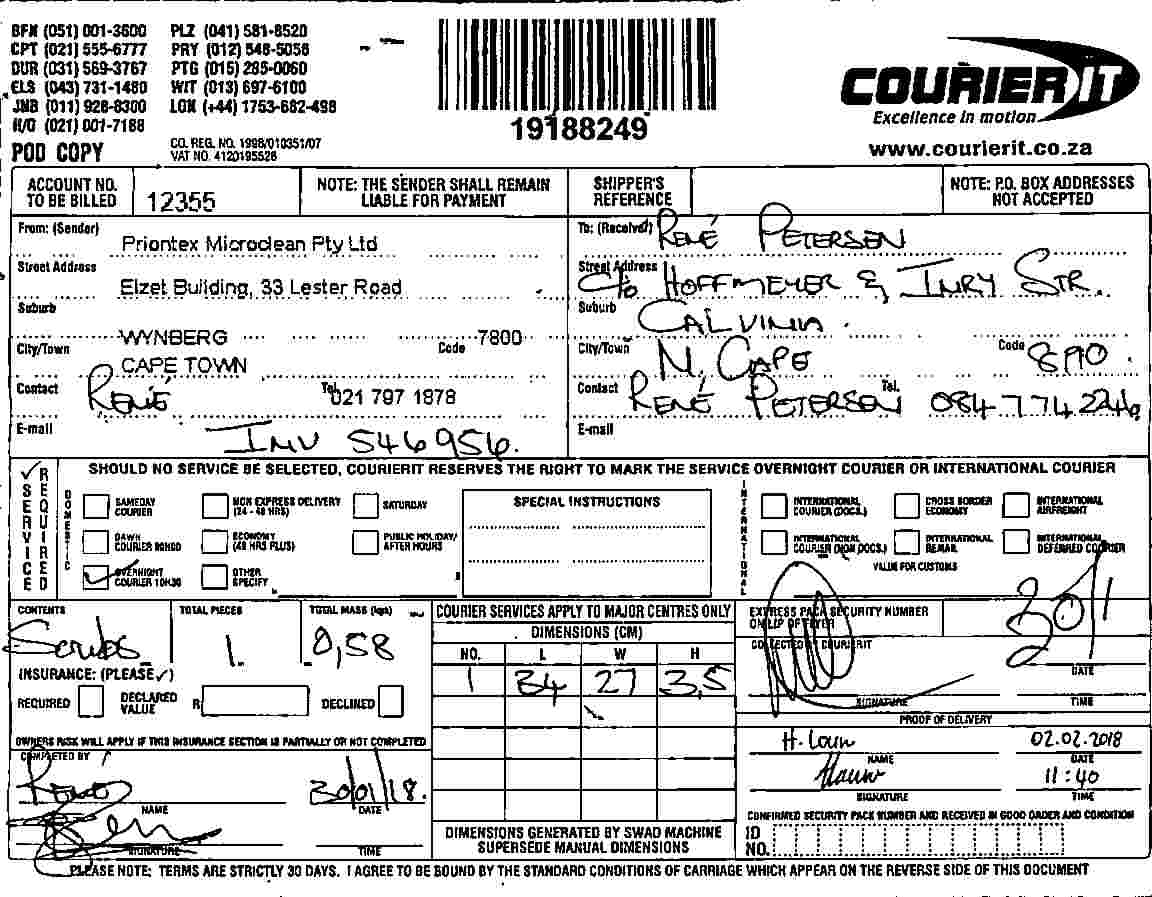 BFN (051) 001-3600 PLZ (041) 581-8520
CPT (021) 555-6777 PRY (012) 548-5056
DUR (031) 569-3767 PTG (015) 285-0060
ELS (043) 731-1480 WIT (013) 697-6100
JNB (011) 928-8300 LON (+44) 1753-682-498
H/O (021) 001-7188
POD COPY
CO. REG. NO. 1998/010351/07
VAT NO. 4120195526
19188249
COURIERIT
Excellence in motion
www.courierit.co.za
ACCOUNT NO. TO BE BILLED 12355
NOTE: THE SENDER SHALL REMAIN LIABLE FOR PAYMENT
SHIPPER'S REFERENCE
NOTE: P.O. BOX ADDRESSES NOT ACCEPTED
From: (Sender) Priontex Microclean Pty Ltd
Street Address Elzet Building, 33 Lester Road
Suburb WYNBERG
Code 7800
City/Town CAPE TOWN
Contact RENÉ Tel. 021 797 1878
E-mail INV 546956.
To: (Receiver) RENÉ PETERSEN
Street Address C/o HOFFMEYER & INRY STR.
Suburb CALVINIA.
City/Town N. CAPE Code 8190.
Contact RENÉ PETERSEN Tel. 084 774 2246
E-mail
SERVICE REQUIRED
SHOULD NO SERVICE BE SELECTED, COURIERIT RESERVES THE RIGHT TO MARK THE SERVICE OVERNIGHT COURIER OR INTERNATIONAL COURIER
DOMESTIC
SAMEDAY COURIER
NON EXPRESS DELIVERY (24 - 48 HRS)
SATURDAY
DAWN COURIER 90H00
ECONOMY (48 HRS PLUS)
PUBLIC HOLIDAY/ AFTER HOURS
OVERNIGHT COURIER 10H30
OTHER SPECIFY
SPECIAL INSTRUCTIONS
INTERNATIONAL
INTERNATIONAL COURIER (DOCS.)
CROSS BORDER ECONOMY
INTERNATIONAL AIRFREIGHT
INTERNATIONAL COURIER (NON DOCS.)
INTERNATIONAL REMAIL
INTERNATIONAL DEFERRED COURIER
VALUE FOR CUSTOMS
CONTENTS Scrubs
TOTAL PIECES 1
TOTAL MASS (kgs) 0,58
INSURANCE: (PLEASE ✓)
REQUIRED DECLARED VALUE R DECLINED
OWNERS RISK WILL APPLY IF THIS INSURANCE SECTION IS PARTIALLY OR NOT COMPLETED
COMPLETED BY
RENÉ 30/01/18.
NAME DATE
SIGNATURE TIME
COURIER SERVICES APPLY TO MAJOR CENTRES ONLY
DIMENSIONS (CM)
NO. L W H
1 34 27 3,5
DIMENSIONS GENERATED BY SWAD MACHINE SUPERSEDE MANUAL DIMENSIONS
EXPRESS PACK SECURITY NUMBER ON LIP OF FLYER
COLLECTED BY COURIERIT
30/1
DATE
SIGNATURE TIME
PROOF OF DELIVERY
H. 02.02.2018
NAME DATE
11:40
SIGNATURE TIME
CONFIRMED SECURITY PACK NUMBER AND RECEIVED IN GOOD ORDER AND CONDITION
ID NO.
PLEASE NOTE: TERMS ARE STRICTLY 30 DAYS. I AGREE TO BE BOUND BY THE STANDARD CONDITIONS OF CARRIAGE WHICH APPEAR ON THE REVERSE SIDE OF THIS DOCUMENT